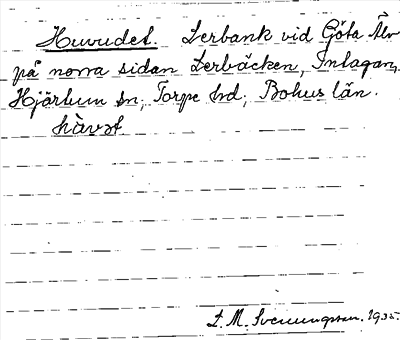 Huvudet. Lerbank vid Göta Älv
på norra sidan Lerbäcken, Intagan,
Hjärtum sn, Torpe hd, Bohus län.
hùvət
L. M. Svenungsson. 1935.